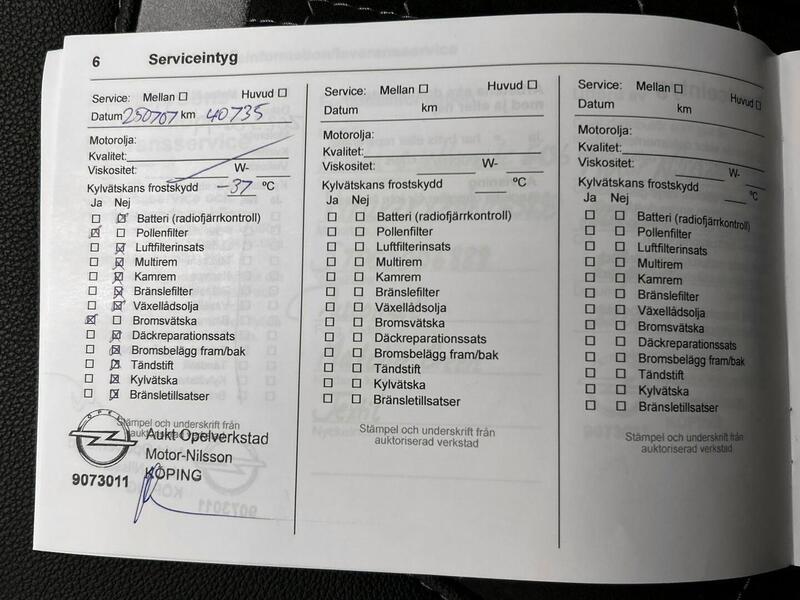 6 Serviceintyg
Service: Mellan ☐ Huvud ☐
Datum 250707 km 40735
Motorolja:
Kvalitet:
Viskositet: W-
Kylvätskans frostskydd -37 °C
Ja Nej
☐ ☒ Batteri (radiofjärrkontroll)
☒ ☐ Pollenfilter
☐ ☒ Luftfilterinsats
☐ ☒ Multirem
☐ ☒ Kamrem
☐ ☒ Bränslefilter
☐ ☒ Växellådsolja
☒ ☐ Bromsvätska
☐ ☒ Däckreparationssats
☐ ☒ Bromsbelägg fram/bak
☐ ☒ Tändstift
☐ ☒ Kylvätska
☐ ☒ Bränsletillsatser
Stämpel och underskrift från
auktoriserad verkstad
OPEL
Aukt Opelverkstad
Motor-Nilsson
KÖPING
9073011
Service: Mellan ☐ Huvud ☐
Datum km
Motorolja:
Kvalitet:
Viskositet: W-
Kylvätskans frostskydd °C
Ja Nej
☐ ☐ Batteri (radiofjärrkontroll)
☐ ☐ Pollenfilter
☐ ☐ Luftfilterinsats
☐ ☐ Multirem
☐ ☐ Kamrem
☐ ☐ Bränslefilter
☐ ☐ Växellådsolja
☐ ☐ Bromsvätska
☐ ☐ Däckreparationssats
☐ ☐ Bromsbelägg fram/bak
☐ ☐ Tändstift
☐ ☐ Kylvätska
☐ ☐ Bränsletillsatser
Stämpel och underskrift från
auktoriserad verkstad
Service: Mellan ☐ Huvud ☐
Datum km
Motorolja:
Kvalitet:
Viskositet: W-
Kylvätskans frostskydd °C
Ja Nej
☐ ☐ Batteri (radiofjärrkontroll)
☐ ☐ Pollenfilter
☐ ☐ Luftfilterinsats
☐ ☐ Multirem
☐ ☐ Kamrem
☐ ☐ Bränslefilter
☐ ☐ Växellådsolja
☐ ☐ Bromsvätska
☐ ☐ Däckreparationssats
☐ ☐ Bromsbelägg fram/bak
☐ ☐ Tändstift
☐ ☐ Kylvätska
☐ ☐ Bränsletillsatser
Stämpel och underskrift från
auktoriserad verkstad